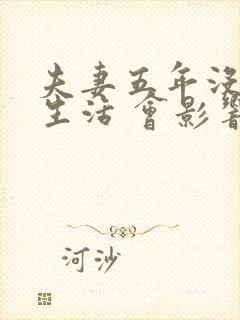 夫妻五年没
生活 會影響
河沙